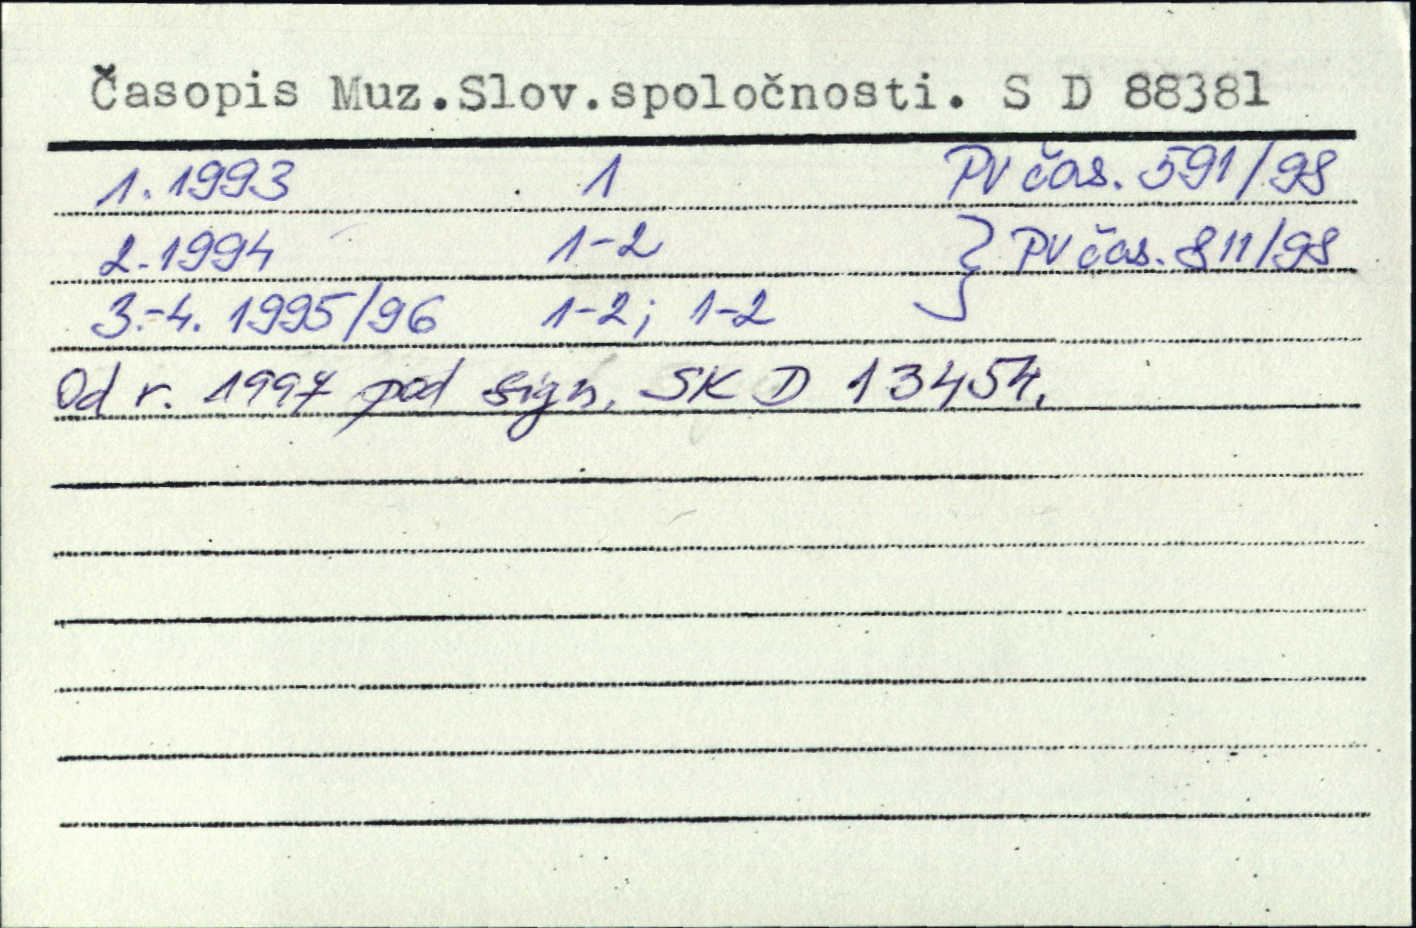 Časopis Muz.Slov.spoločnosti. S D 88381
1. 1993 1 PV čas. 591/98
2. 1994 1-2 } PV čas. 811/98
3.-4. 1995/96 1-2; 1-2
Od r. 1997 pod sign. SK D 13454.